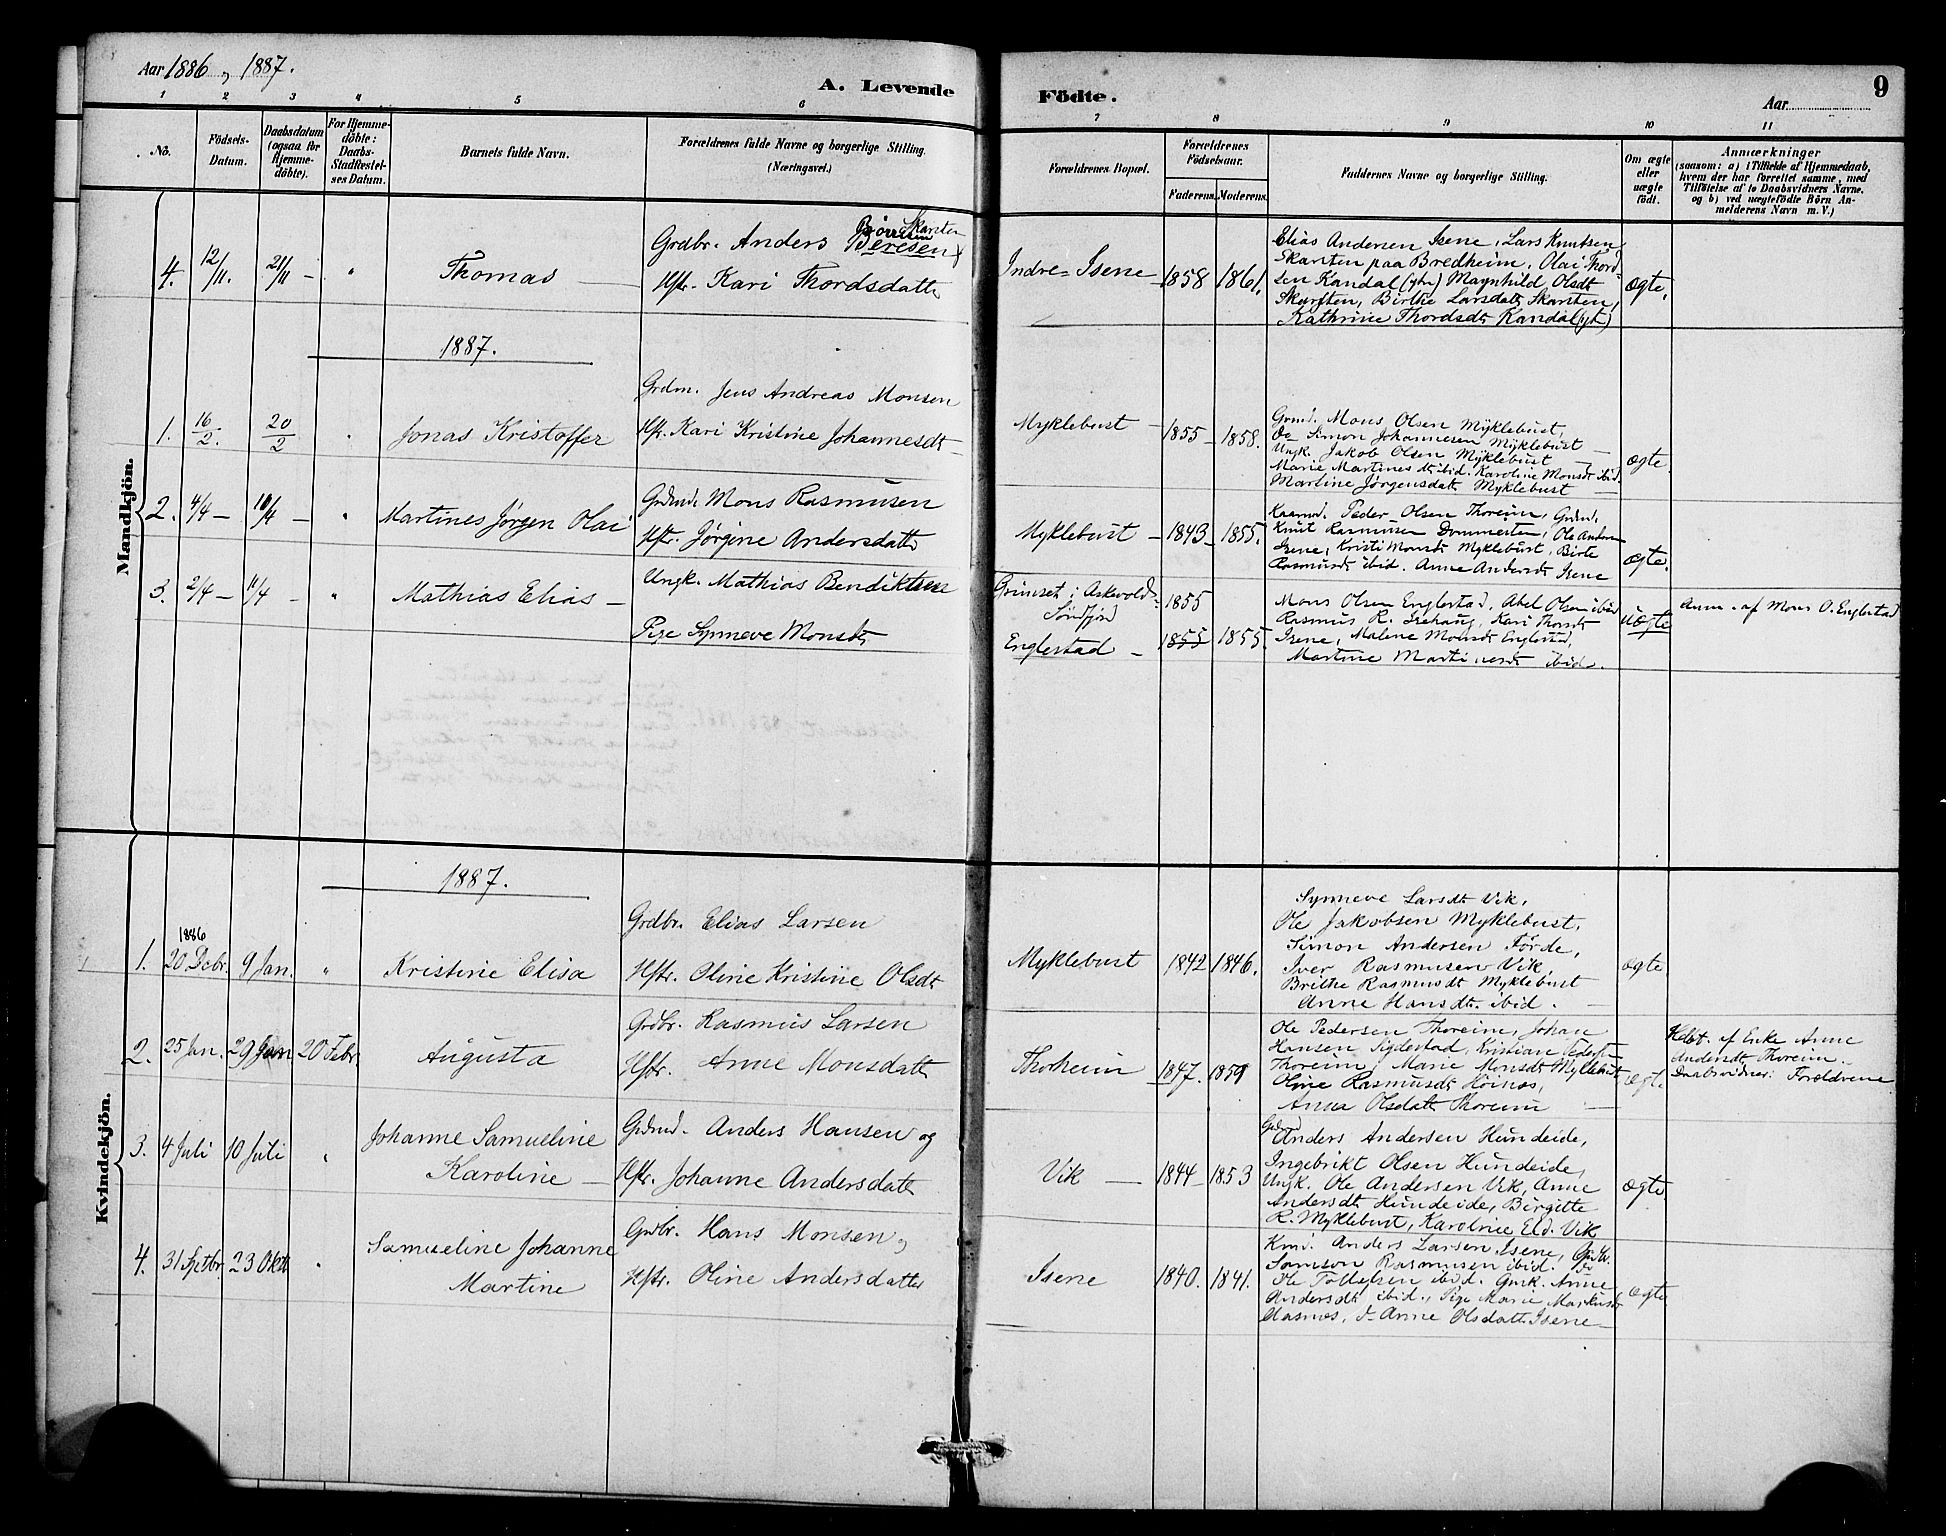 Aar 1886 og 1887.
A. Levende Födte.
Aar
9
1 2 3 4 5 6 7 8 9 10 11
No.
Födsels-Datum.
Daabsdatum (ogsaa for Hjemme-döbte).
For Hjemme-döbte: Daabs-Stadfæstel-ses Datum.
Barnets fulde Navn.
Forældrenes fulde Navne og borgerlige Stilling.
(Næringsvei.)
Forældrenes Bopæl.
Forældrenes Födselsaar.
Faderens. Moderens.
Faddernes Navne og borgerlige Stilling.
Om ægte eller uægte födt.
Anmærkninger
(saasom: a) i Tilfælde af Hjemmedaab,
hvem der har forrettet samme, med
Tilföielse af to Daabsvidners Navne,
og b) ved uægtefödte Börn An-
melderens Navn m. V.)
Mandkjön.
4. 12/11. 21/11 - " Thomas
Grdbr. Anders Beresen
Skarsten
Hstr. Kari Thordsdatt
Indre-Isene 1858 1861.
Elias Andersen Isene, Lars Knutsen
Skarsten paa Bredheim. Olai Thord-
sen Kandal (ytre) Maynhild Olsdt
Skarsten, Birthe Larsdatt Skarsten,
Kathrine Thordsdt Kandal (yt)
ægte.
1887.
1. 16/2. 20/2 " Jonas Kristoffer
Grdm. Jens Andreas Monsen
Hstr. Kari Kristine Johannesdt
Myklebust 1855 1858.
Grmd. Mons Olsen Myklebust,
Do Simon Johannesen Myklebust
Ungk. Jakob Olsen Myklebust
Marie Martinesdt ibid. Karoline Monsdt ibid.
Martine Jørgensdatt Myklebust
ægte.
2. 4/4 - 10/4 - " Martines Jørgen Olai
Grdmd. Mons Rasmusen
Hstr. Jørgine Andersdatt
Myklebust 1843 1855.
Kaarmd. Peder Olsen Thoreim, Grdmd.
Knut Rasmusen Dommersten, Ole Andersen
Isene, Kristi Monsdt Myklebust, Birte
Rasmusdt ibid. Anne Andersdt Isene
ægte.
3. 2/4 - 11/4 - " Mathias Elias
Ungk. Mathias Bendiktsen
Pige Synneve Monsdt
Grimset i Askevold-
Söndfjord 1855
Englestad 1855 1855.
Mons Olsen Englestad, Abel Olsen ibid
Rasmus R. Isehaug, Kari Thorsdt
Isene, Malene Monsdt Englestad,
Martine Martinesdt ibid.
uægte
Anm. af Mons O. Englestad
Kvindekjön.
1887.
1. 1886 20 Debr. 9 Jan. " Kristine Elisa
Grdbr. Elias Larsen
Hstr. Oline Kristine Olsdt
Myklebust 1842 1846.
Synneve Larsdt Vik,
Ole Jakobsen Myklebust,
Simon Andersen Förde,
Iver Rasmusen Vik,
Brithe Rasmusdt Myklebust
Anne Hansdt. ibid.
ægte
2. 25 Jan. 29 Jan 20 Febr. Augusta
Grdbr. Rasmus Larsen
Hstr. Anne Monsdatt
Thorheim 1847. 1859
Ole Pedersen Thoreim, Johan
Hansen Sigdestad, Kristian Pedersen
Thoreim, Marie Monsdt Myklebust,
Oline Rasmusdt Höinæs,
Anna Olsdatt Thoreim
ægte
af Enke Anne
Andersdt Thoreim.
Daabsvidner: Forældrene
3. 4 Juli 10 Juli " Johanne Samueline
Karoline
Grdmd. Anders Hansen og
Hstr. Johanne Andersdatt
Vik 1844 1853
Grdmd
Anders Andersen Hundeide,
Ingebrikt Olsen Hundeide,
Ungk. Ole Andersen Vik, Anne
Andersdt Hundeide, Birgitte
R. Myklebust, Karoline Eld. Vik
ægte
4. 31 Sptbr. 23 Oktb " Samueline Johanne
Martine
Grdbr. Hans Monsen og
Hstr. Oline Andersdatt
Isene 1840. 1841.
Anders Larsen Isene, Grdbr.
Samson Rasmusen ibid.
Ole Tollefsen ibid. Gmk. Anne
Andersdt ibid., Pige Marie Markusdt
Aasnæs, d- Anne Olsdatt Isene
ægte